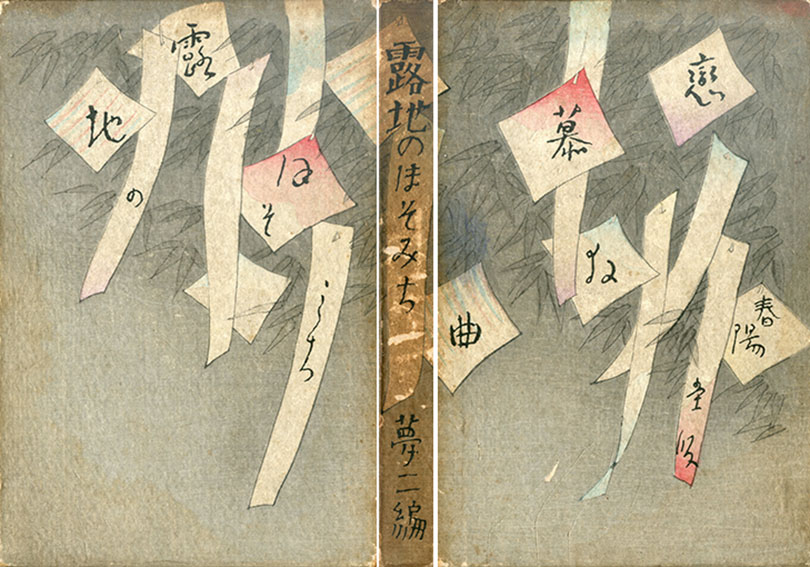 露
地
の
ほそ
みち
露地のほそみち
夢二編
戀
慕
曲
春陽
堂版